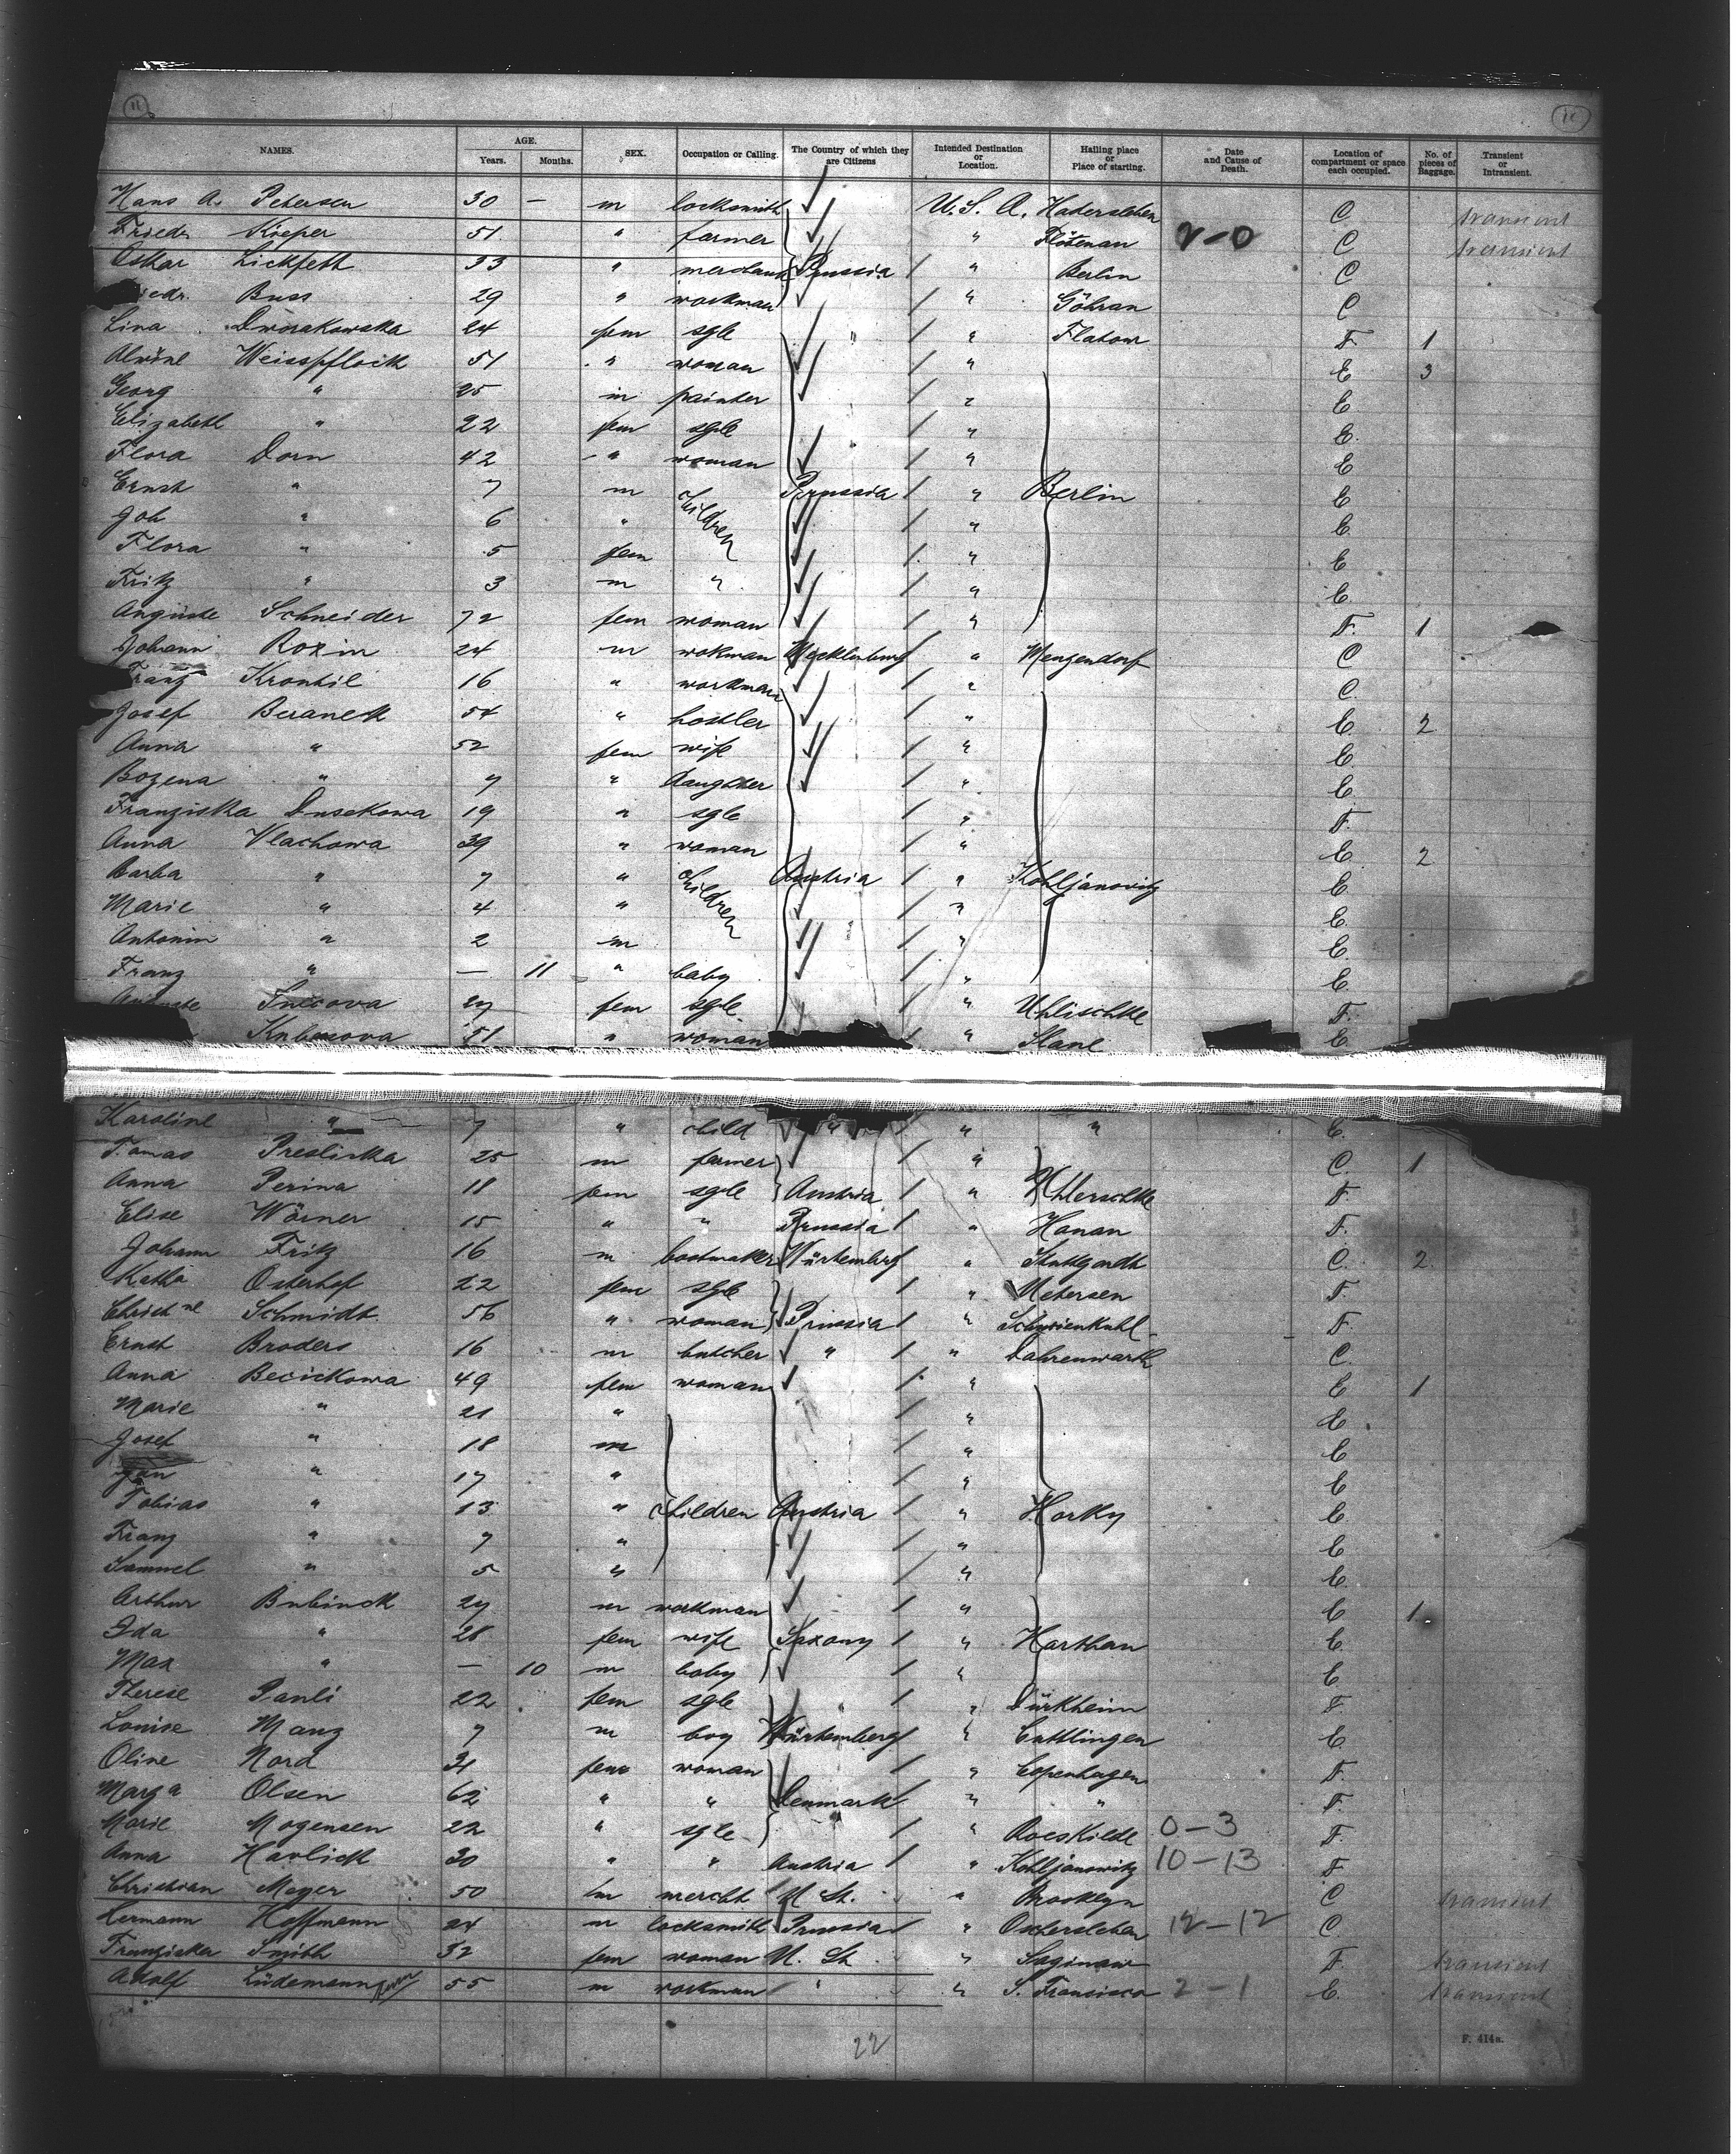 11
NAMES. AGE. Years. Months. SEX. Occupation or Calling. The Country of which they are Citizens Intended Destination or Location. Hailing place or Place of starting. Date and Cause of Death. Location of compartment or space each occupied. No. of pieces of Baggage. Transient or Intransient.
Hans A. Petersen 30 — m locksmith U.S.A. Hadersleben C transient
Friedr Kieper 51 " farmer " 2-0 C transient
Oskar Lickfett 33 " Prussia " Berlin C
Buss 29 " workman " Göhran C
Lina Dworakowska 24 fem sgle " " Flatow F. 1
Weisspflock 51 " woman " E 3
Georg " 25 m painter " E
Elizabeth " 22 fem sgle " E
Flora Dorn 42 " woman " E
Ernst " 7 m children Prussia " Berlin E
Joh " 6 " " E
Flora " 5 fem " E
Fritz " 3 m " " E
Auguste Schneider 72 fem woman " F. 1
Johann Rozin 24 m wokman Mecklenburg " Menzendorf C
Franz Krontil 16 " workman " C
Josef Beranek 54 " hostler " E 2
Anna " 52 fem wife " E
Bozena " 7 " daughter " E
Franziska Dusekowa 19 " sgle " F.
Anna Vlachowa 39 " woman " E 2
Barba " 7 " children Austria " Kohljanovitz E
Marie " 4 " " E
Antonin " 2 m " E
Franz " — 11 " baby " E
27 fem sgle " Uhlischke F.
51 " woman " Slane E
Karoline " 7 " child " " " E.
Tomas Presliska 25 m farmer " C. 1
Anna Perina 18 fem sgle Austria " F
Elise Wörner 15 " " Prussia " Hanau F.
Johann Fritz 16 m bootmaker Würtemberg " Stuttgardt C. 2
Katha Osterhof 22 fem sgle " Uetersen F.
Christne Schmidt 56 " woman Prussia " F.
Ernst Broders 16 m butcher " " Dahrenwurth C.
Anna Becickowa 49 fem woman " E 1
Marie " 21 " " E
Josef " 18 m " E
Jan " 17 " " E
Tobias " 13 " children Austria " Horky E
Franz " 7 " " E
Samuel " 5 " " E
Arthur Bubinck 27 m workman " E 1
Ida " 28 fem wife Saxony " Harthau E
Max " — 10 m baby " E
Therese Pauli 22 fem sgle " " Dürkheim F
Louise Manz 7 m boy Würtemberg " E
Oline Nord 31 fem woman " Copenhagen F.
Marga Olsen 62 " " Denmark " " F.
Marie Mogensen 22 " sgle " " Roeskilde 0-3 F
Anna Havlick 30 " " Austria " Kohljanowitz 10-13 F
Christian Meyer 50 m mercht U. St. " Brooklyn C transient
Hermann Hoffmann 24 m locksmith Prussia " Oschersleben 12-12 C.
Franziska Smith 32 fem woman U. St " Saginaw F. transient
Adolf Lüdemann 55 m workman " " S. Francisco 2-1 E. transient
22
F. 414a.